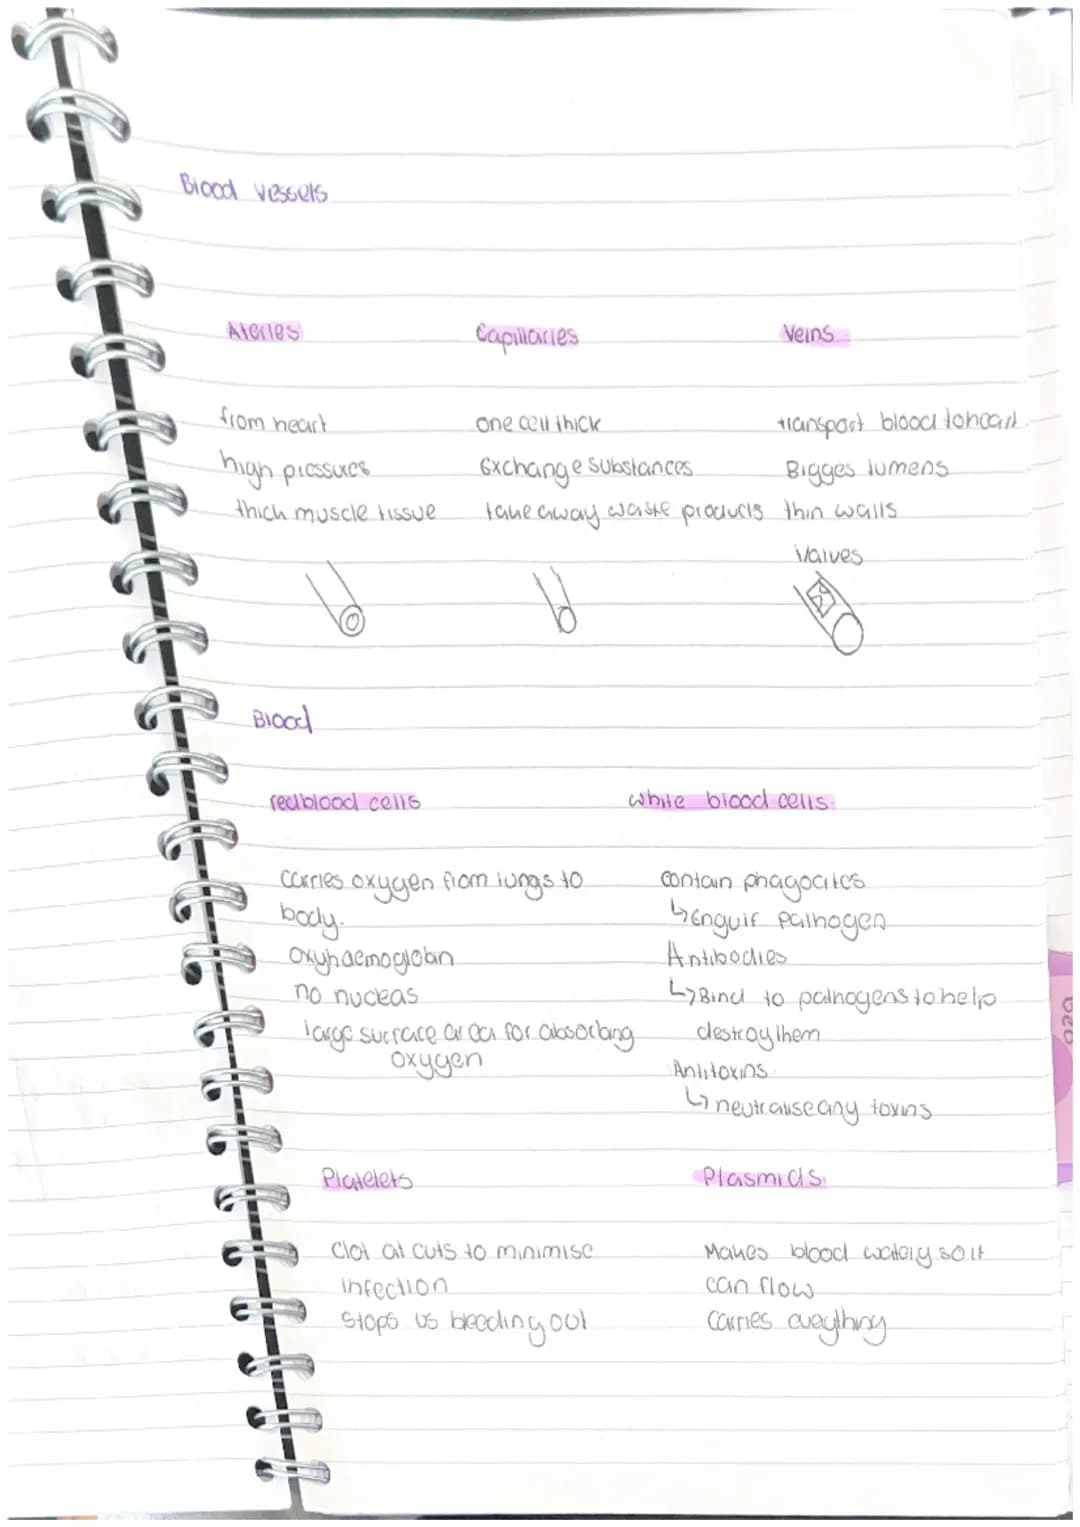 Blood vessels
Ateries Capillaries Veins
from heart one cell thick transport blood to heart
high pressures Exchange substances Bigges lumens
thick muscle tissue take away waste products thin walls
Valves
Blood
red blood cells white blood cells
carries oxygen from lungs to
body.
oxyhaemoglobin
no nucleas
large surface area for absorbing
oxygen
contain phagocites
↳ Engulf pathogen
Antibodies
↳ Bind to pathogens to help
destroy them
Antitoxins
↳ neutralise any toxins
Platelets Plasmids
Clot at cuts to minimise
infection
Stops us bleeding out
Makes blood watery so it
can flow
Carries eveything